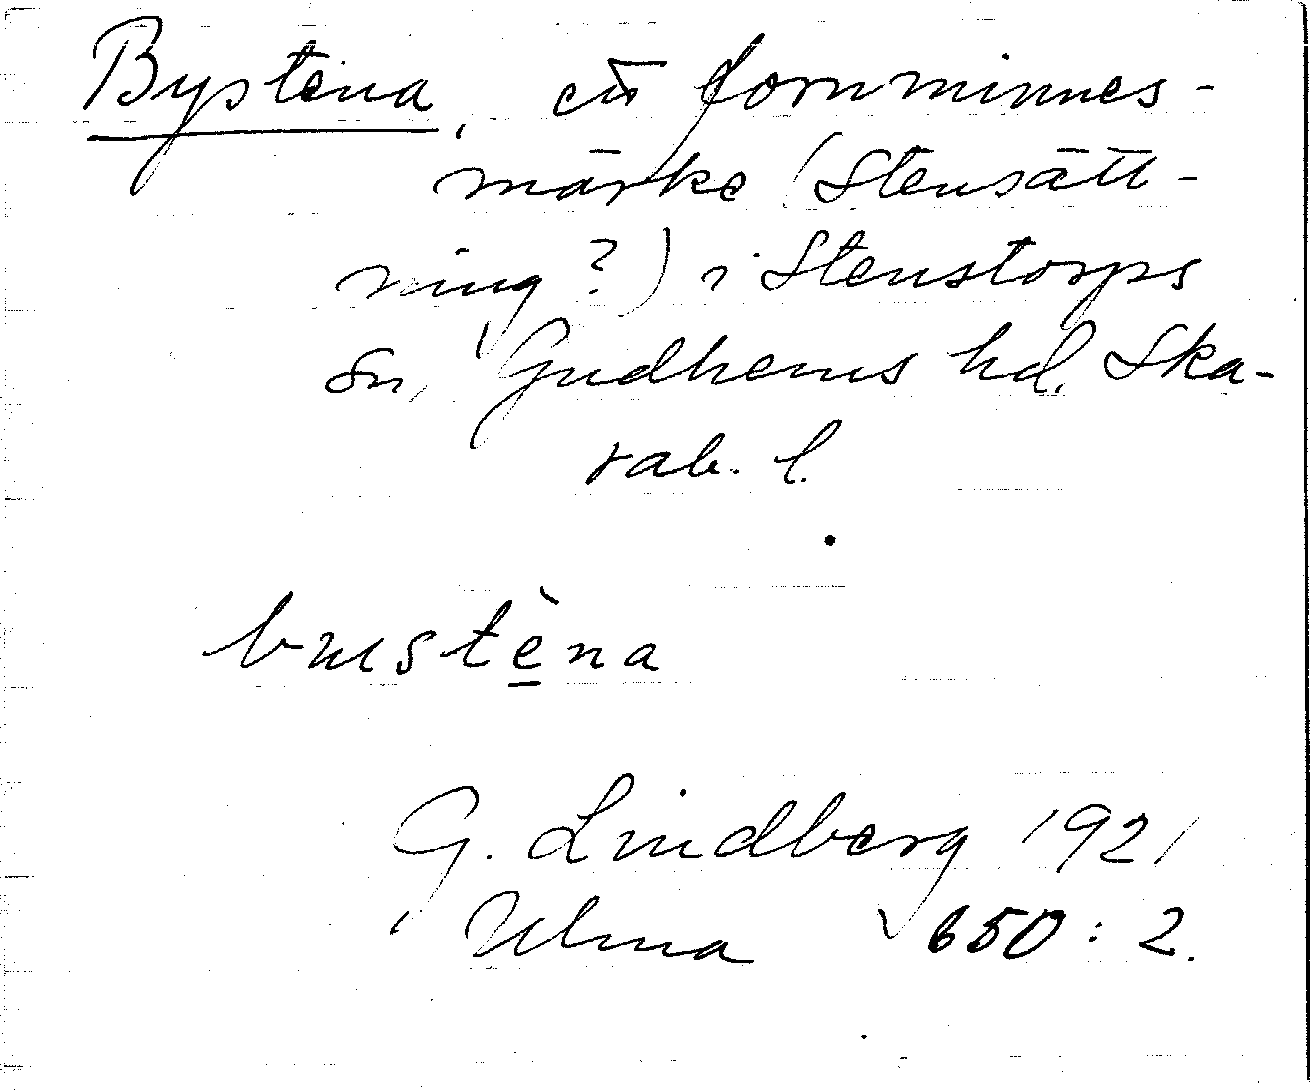 Bystena, ett fornminnes-
märke (Stensätt-
ning?) i Stenstorps
sn, Gudhems hd. Ska-
rab. l.
bustèna
G. Lindberg 1921
Ulma 650:2.